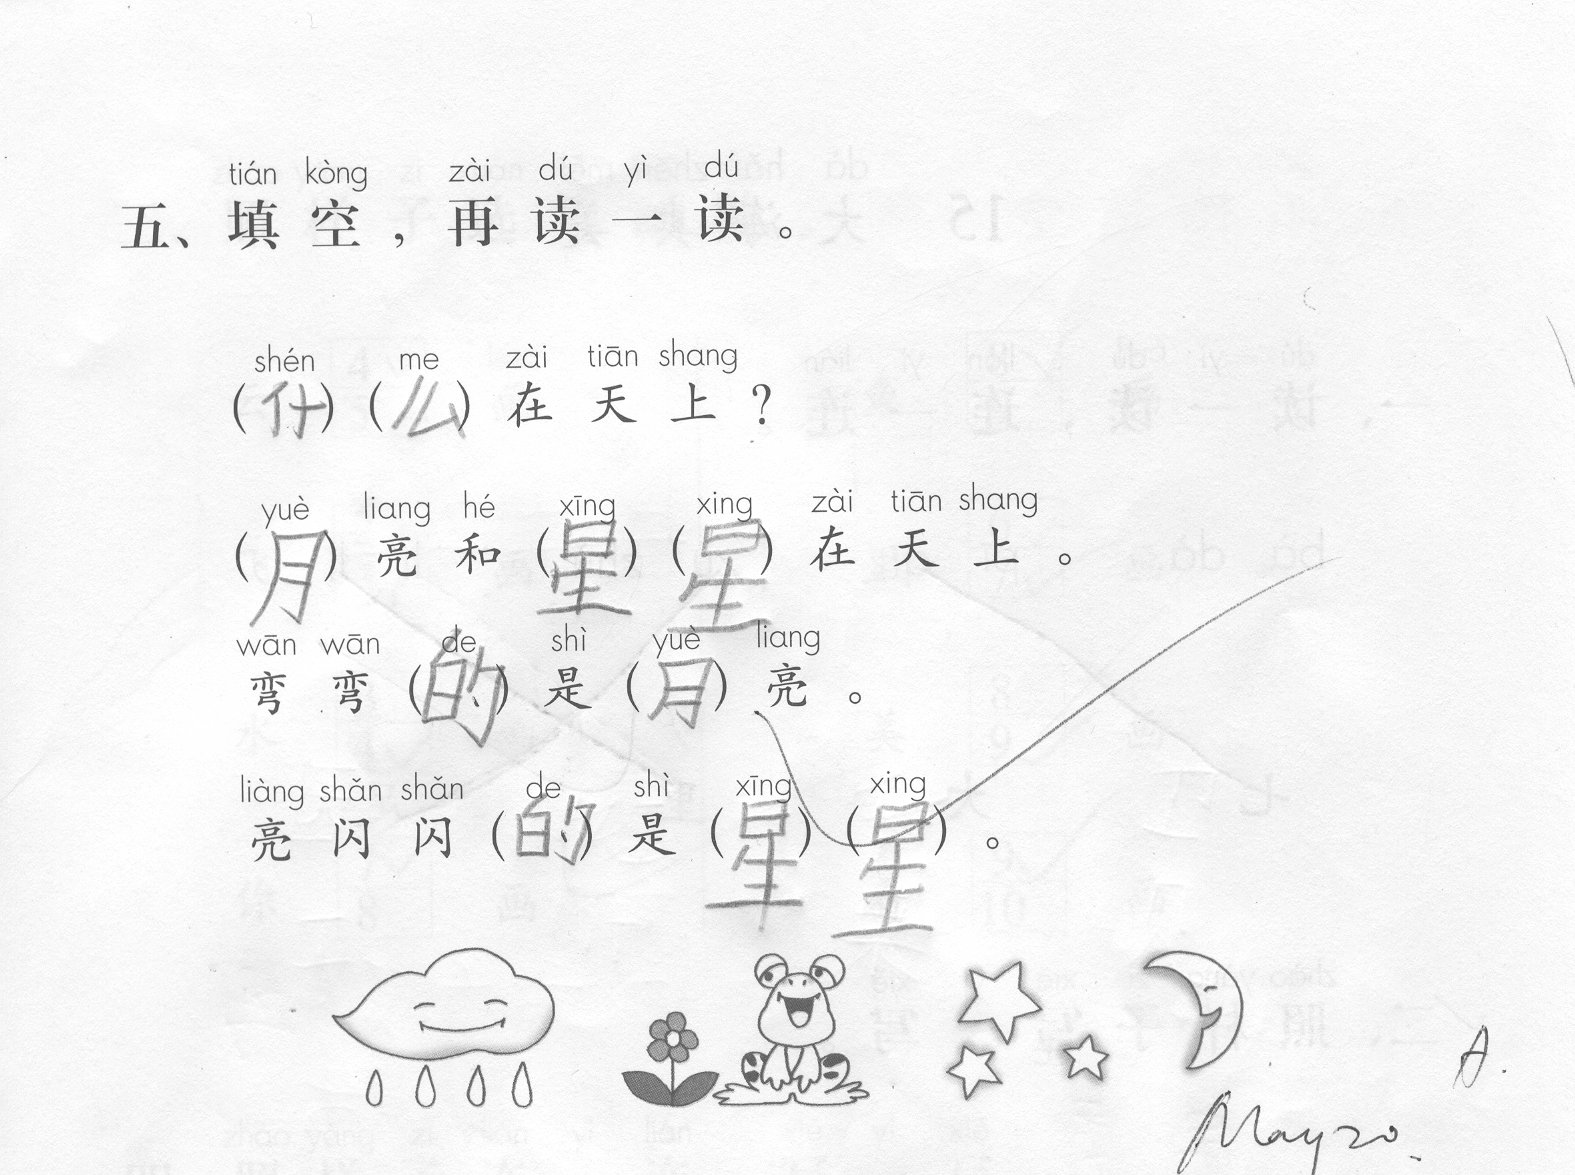 tián kòng zài dú yì dú
五、填空，再读一读。
shén me zài tiān shang
(什)(么)在天上？
yuè liang hé xīng xing zài tiān shang
(月)亮和(星)(星)在天上。
wān wān de shì yuè liang
弯弯(的)是(月)亮。
liàng shǎn shǎn de shì xīng xing
亮闪闪(的)是(星)(星)。
A.
May 20